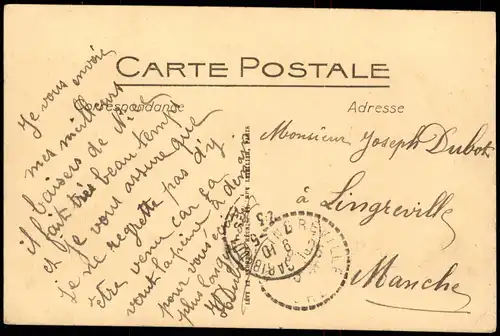 CARTE POSTALE
Correspondance
Adresse
Je vous envoie
mes meilleurs
baisers de Nice
il fait très beau temps
et je vous assure que
je ne regrette pas d'y
être venu car ça
vaut la peine à demain
pour vous
plus long
Monsieur Joseph Dubot
à Lingreville
Manche